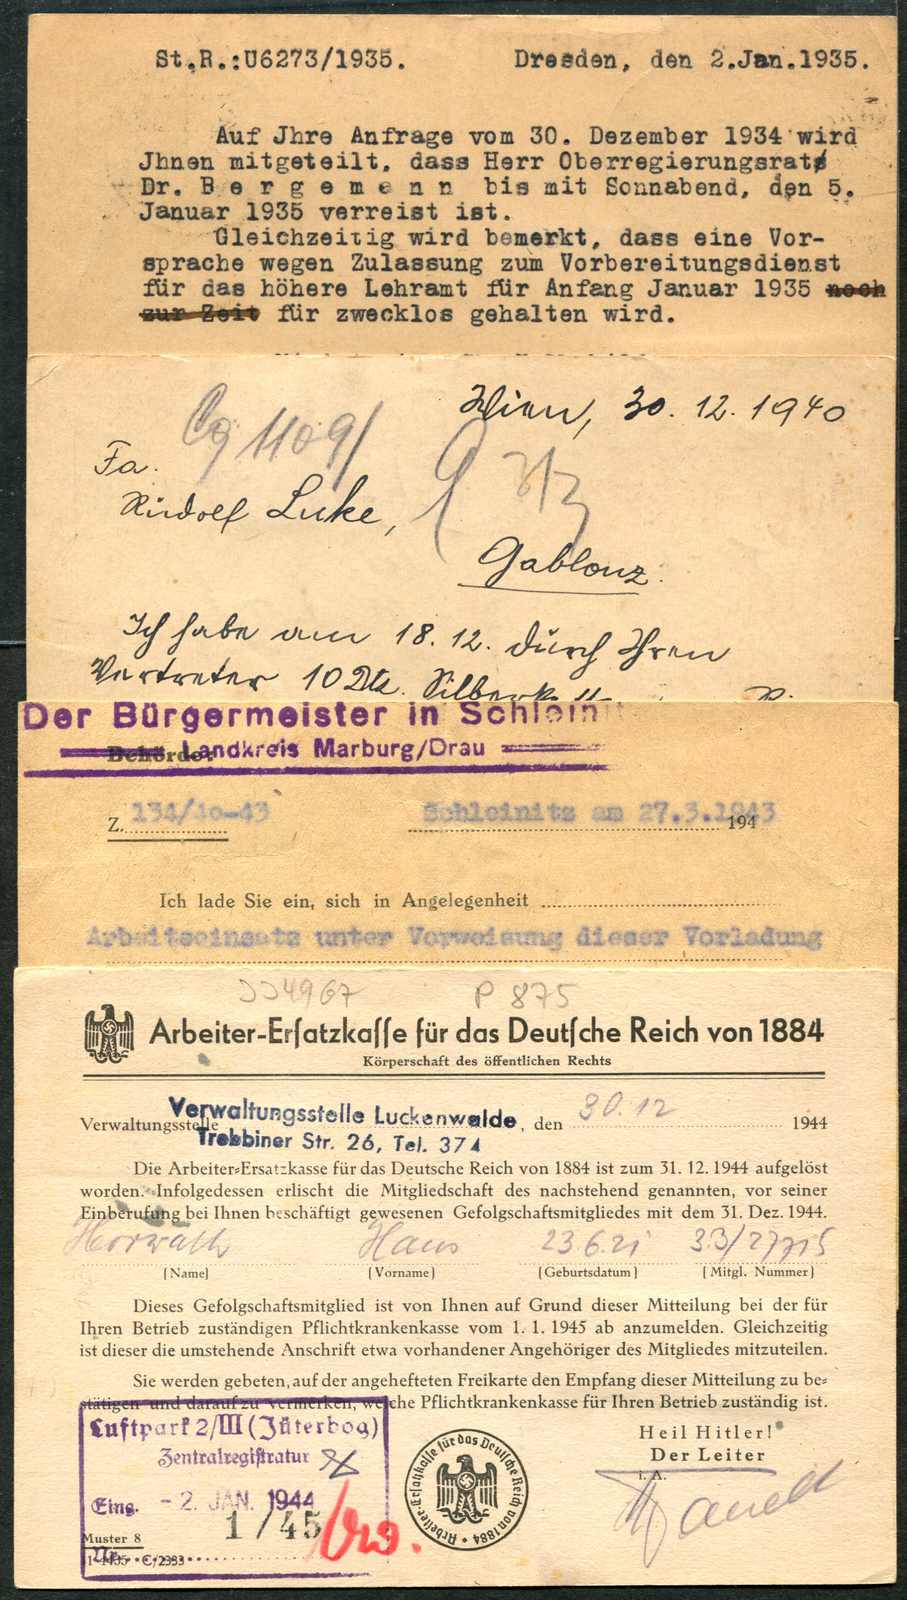 St.R.:U6273/1935. Dresden, den 2.Jan.1935.
Auf Jhre Anfrage vom 30. Dezember 1934 wird
Jhnen mitgeteilt, dass Herr Oberregierungsrat
Dr. B e r g e m a n n bis mit Sonnabend, den 5.
Januar 1935 verreist ist.
Gleichzeitig wird bemerkt, dass eine Vor-
sprache wegen Zulassung zum Vorbereitungsdienst
für das höhere Lehramt für Anfang Januar 1935 noch
zur Zeit für zwecklos gehalten wird.
Wien, 30. 12. 1940
Fa.
Rudolf Luke,
Gablonz.
Ich habe am 18.12. durch Ihren
Vertreter 10
Der Bürgermeister in Schleinit
Behörde: Landkreis Marburg/Drau
Z. 134/10-43 Schleinitz am 27.3.1943 194
Ich lade Sie ein, sich in Angelegenheit
Arbeitseinsatz unter Vorweisung dieser Vorladung
JJ4967 P 875
Arbeiter-Ersatzkasse für das Deutsche Reich von 1884
Körperschaft des öffentlichen Rechts
Verwaltungsstelle Verwaltungsstelle Luckenwalde, den 30.12 1944
Trebbiner Str. 26, Tel. 374
Die Arbeiter-Ersatzkasse für das Deutsche Reich von 1884 ist zum 31. 12. 1944 aufgelöst
worden. Infolgedessen erlischt die Mitgliedschaft des nachstehend genannten, vor seiner
Einberufung bei Ihnen beschäftigt gewesenen Gefolgschaftsmitgliedes mit dem 31. Dez. 1944.
Horwath Hans 23.6.21 33/27715
(Name) (Vorname) (Geburtsdatum) (Mitgl. Nummer)
Dieses Gefolgschaftsmitglied ist von Ihnen auf Grund dieser Mitteilung bei der für
Ihren Betrieb zuständigen Pflichtkrankenkasse vom 1. 1. 1945 ab anzumelden. Gleichzeitig
ist dieser die umstehende Anschrift etwa vorhandener Angehöriger des Mitgliedes mitzuteilen.
Sie werden gebeten, auf der angehefteten Freikarte den Empfang dieser Mitteilung zu be-
stätigen und darauf zu vermerken, welche Pflichtkrankenkasse für Ihren Betrieb zuständig ist.
Heil Hitler!
Der Leiter
I. A.
Luftpark 2/III (Jüterbog)
Zentralregistratur
Eing. - 2. JAN. 1944
1 / 45
Muster 8
Nr.
C/2333
Arbeiter-Ersatzkasse für das Deutsche Reich von 1884